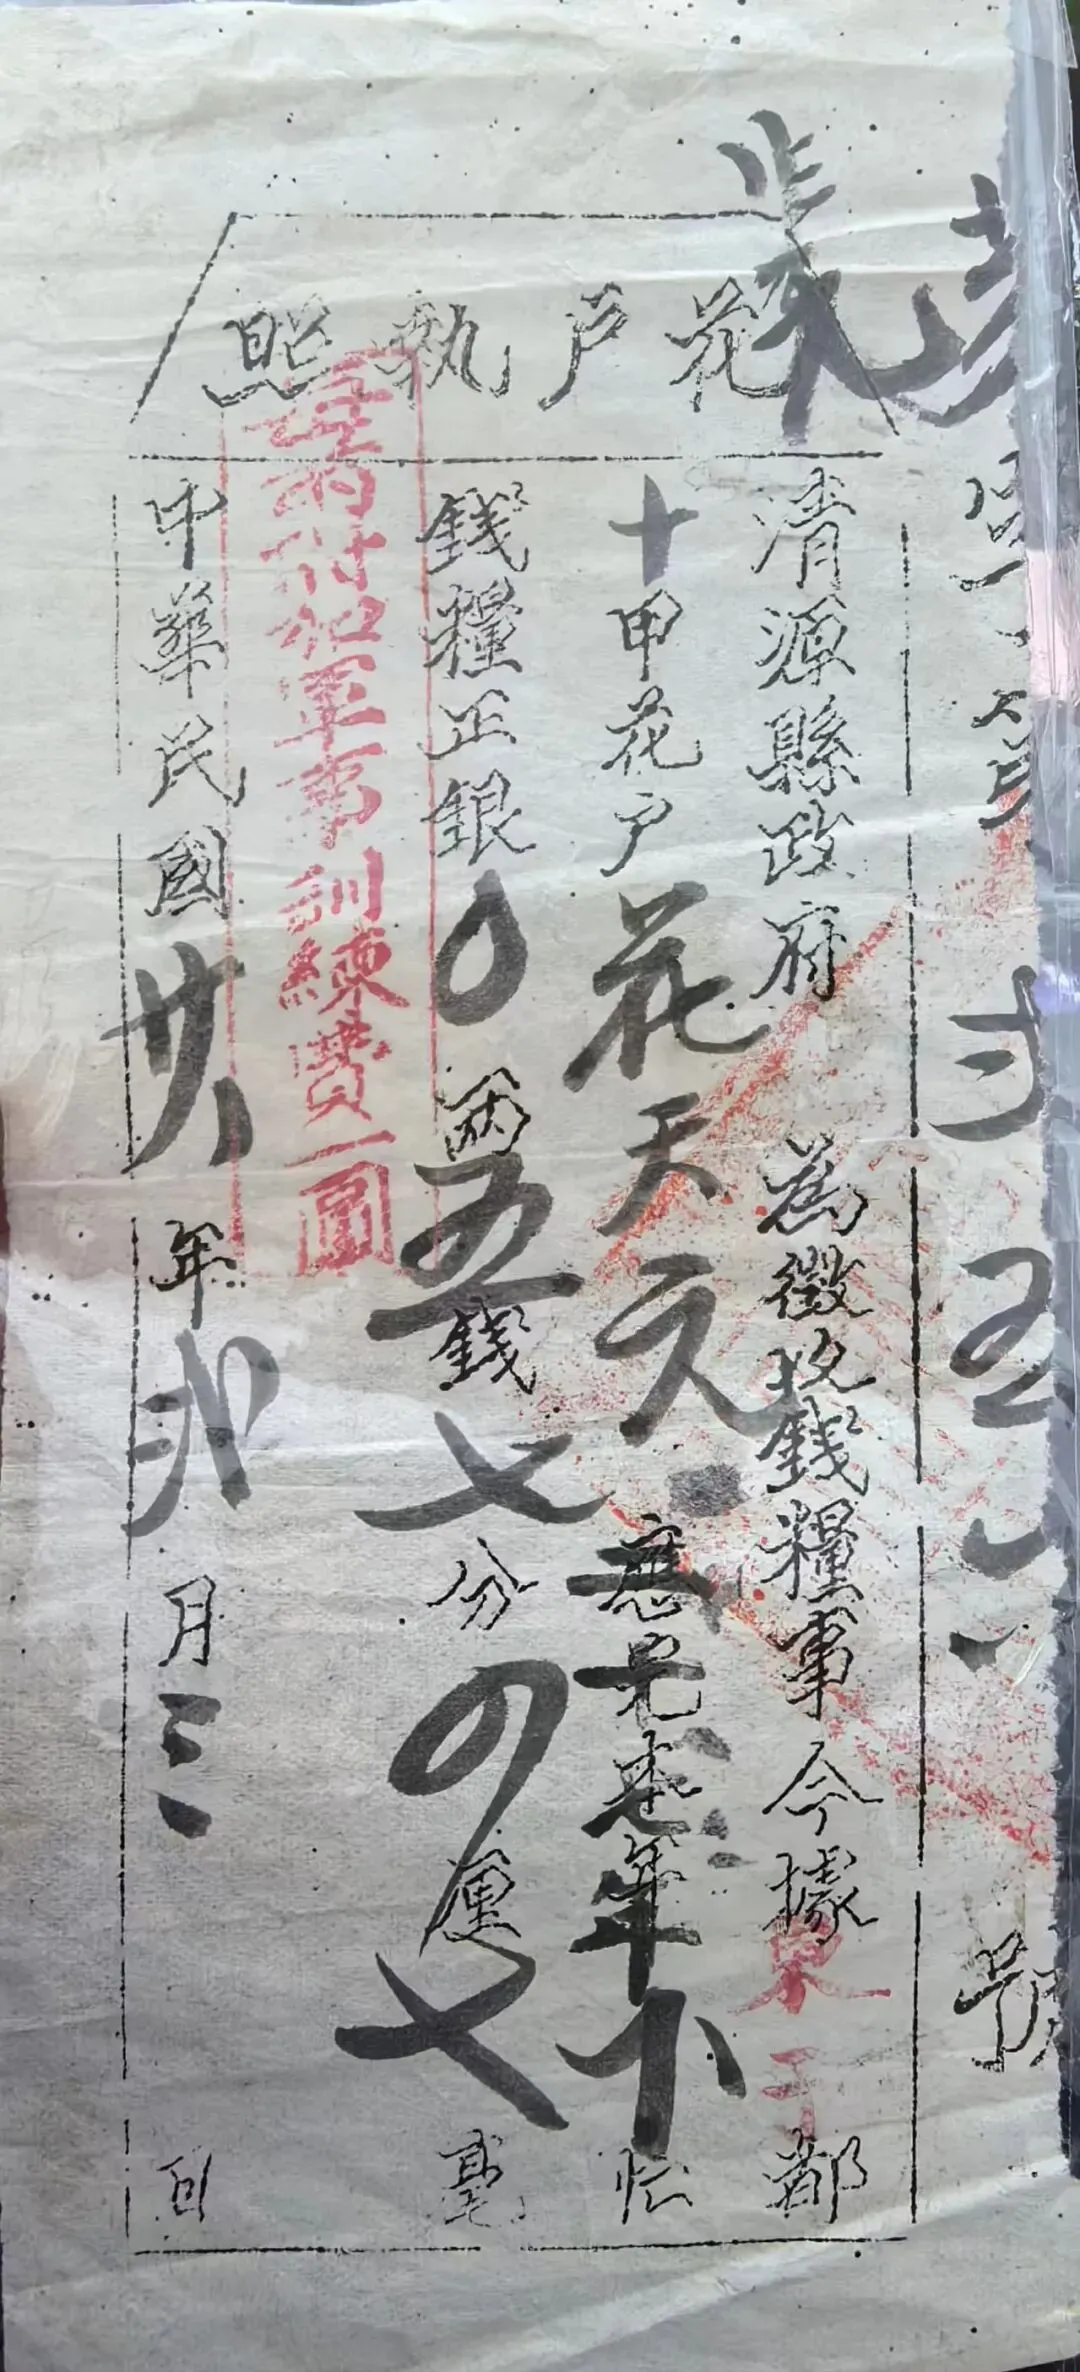 花戶執照
號
清源縣政府 為徵收錢糧事今據東于都
十甲花户花天元 應完本年下忙
錢糧正銀〇兩五錢七分四厘七毫
每兩附加軍事訓練費一圓
中華民國廿八年弍月三日